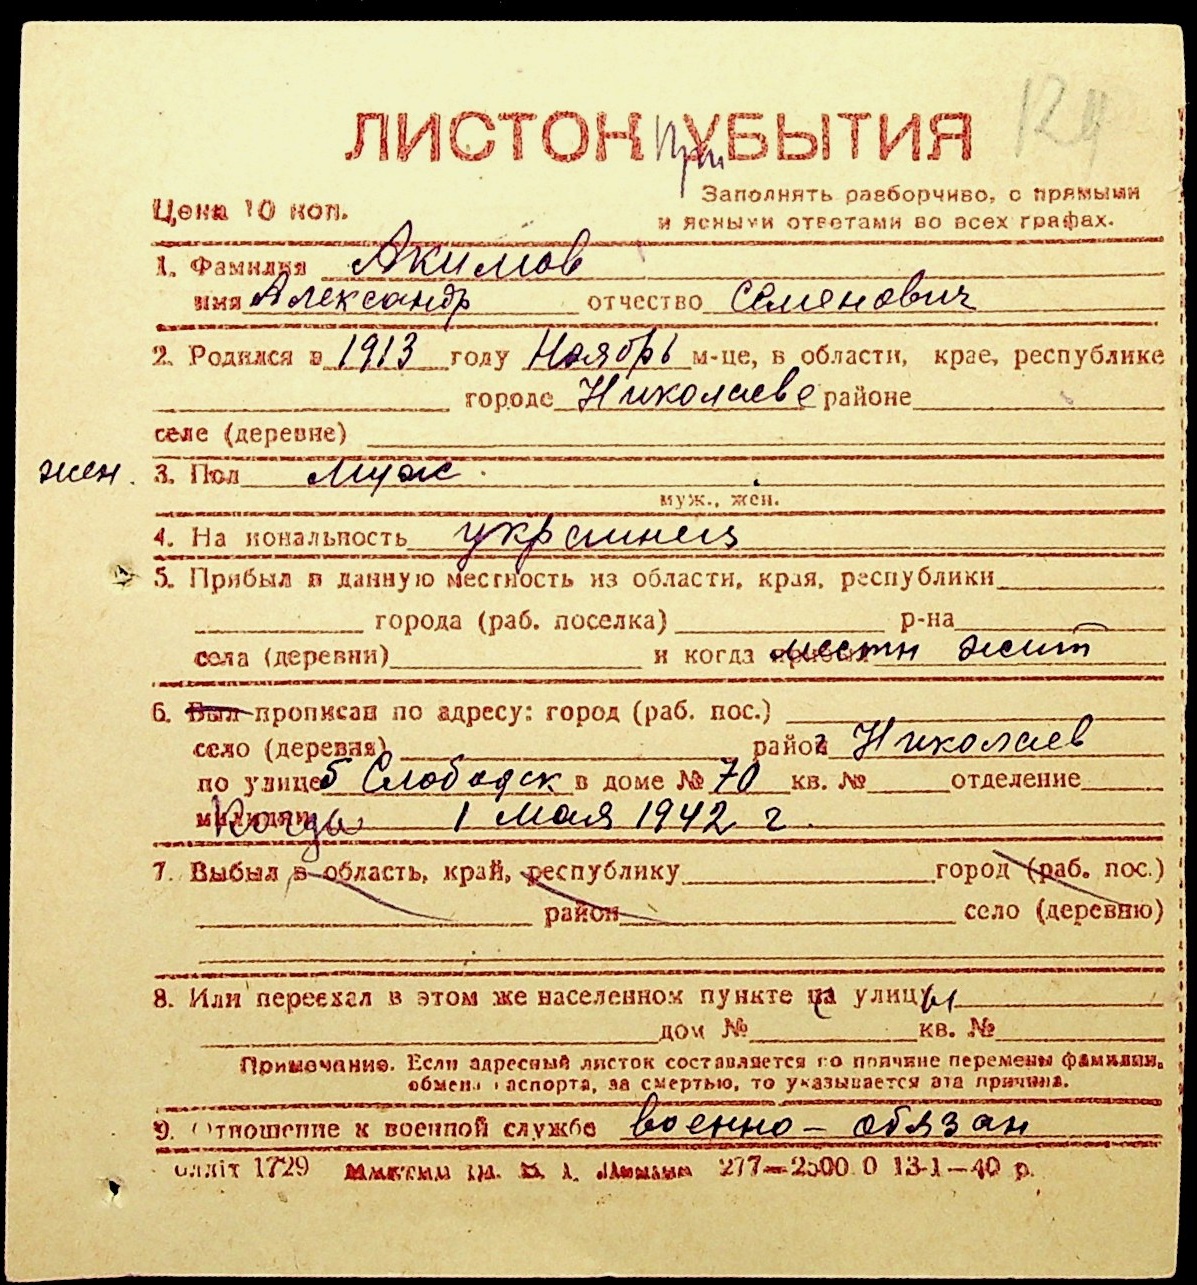 124
ЛИСТОК При УБЫТИЯ
Цена 10 коп.
Заполнять разборчиво, с прямыми
и ясными ответами во всех графах.
1. Фамилия Акимов
имя Александр отчество Семенович
2. Родился в 1913 году Ноябрь м-це, в области, крае, республике
городе Николаеве районе
селе (деревне)
жен. 3. Пол муж.
муж., жен.
4. На иональность украинец
5. Прибыл в данную местность из области, края, республики
города (раб. поселка) р-на
села (деревни) и когда прибыл местн жит
6. Был прописан по адресу: город (раб. пос.)
село (деревня) район г Николаев
по улице 5 Слободск в доме № 70 кв. № отделение
милиции Когда 1 мая 1942 г.
7. Выбыл в область, край, республику город (раб. пос.)
район село (деревню)
8. Или переехал в этом же населенном пункте на с улицы
дом № кв. №
Примечание. Если адресный листок составляется по причине перемены фамилии,
обмена паспорта, за смертью, то указывается эта причина.
9. Отношение к военной службе военно-обязан
1729 277—2500 0 13-1—40 р.